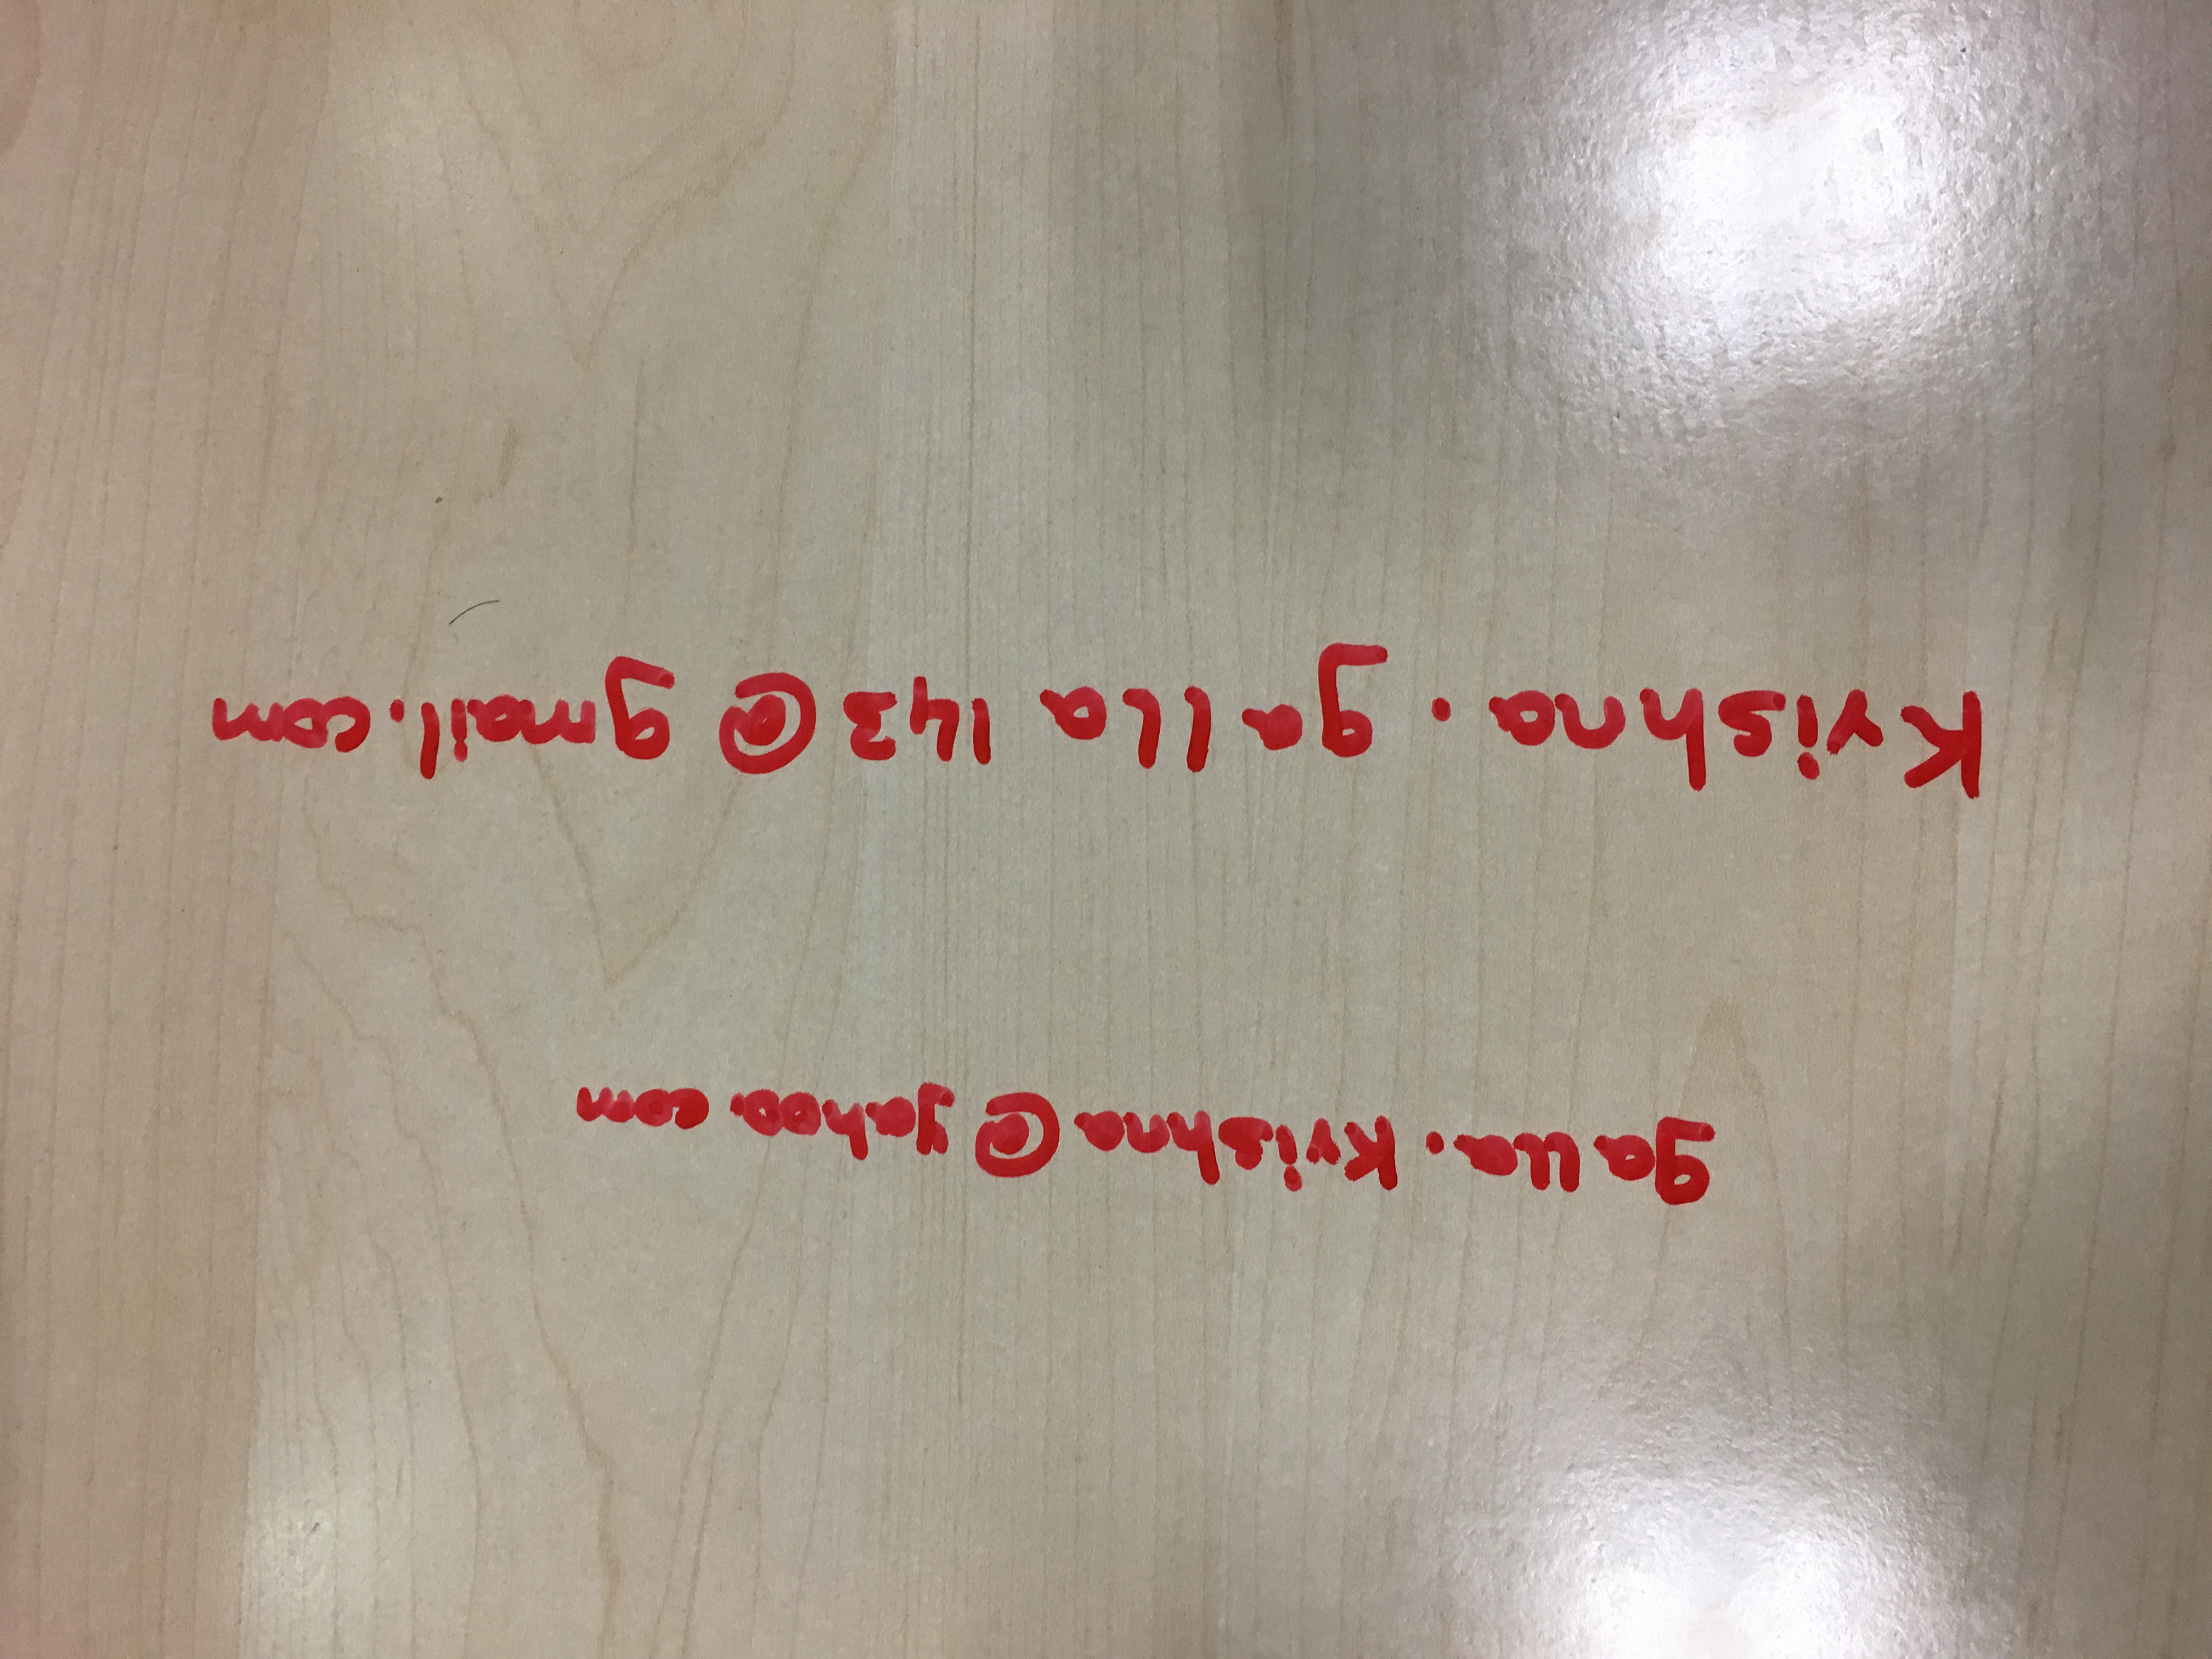 galla.krishna@yahoo.com
Krishna.galla143@gmail.com